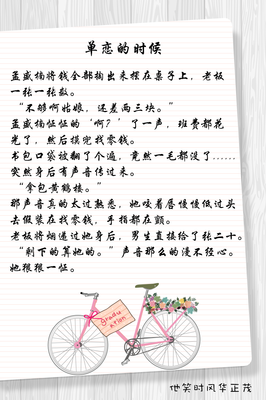 单恋的时候
孟盛楠将钱全部掏出来摆在桌子上，老板
一张一张数。
“不够啊姑娘，还差两三块。”
孟盛楠怔怔的‘啊？’了一声，班费都花
光了，然后摸兜找零钱。
书包口袋被翻了个遍，竟然一毛都没了……
突然身后有声音传过来。
“拿包黄鹤楼。”
那声音真的太过熟悉，她咬着唇慢慢低过头
去假装在找零钱，手指都在颤。
老板将烟递过她身后，男生直接给了张二十。
“剩下的算她的。”声音那么的漫不经心。
她狠狠一怔。
gradu
ation
他笑时风华正茂